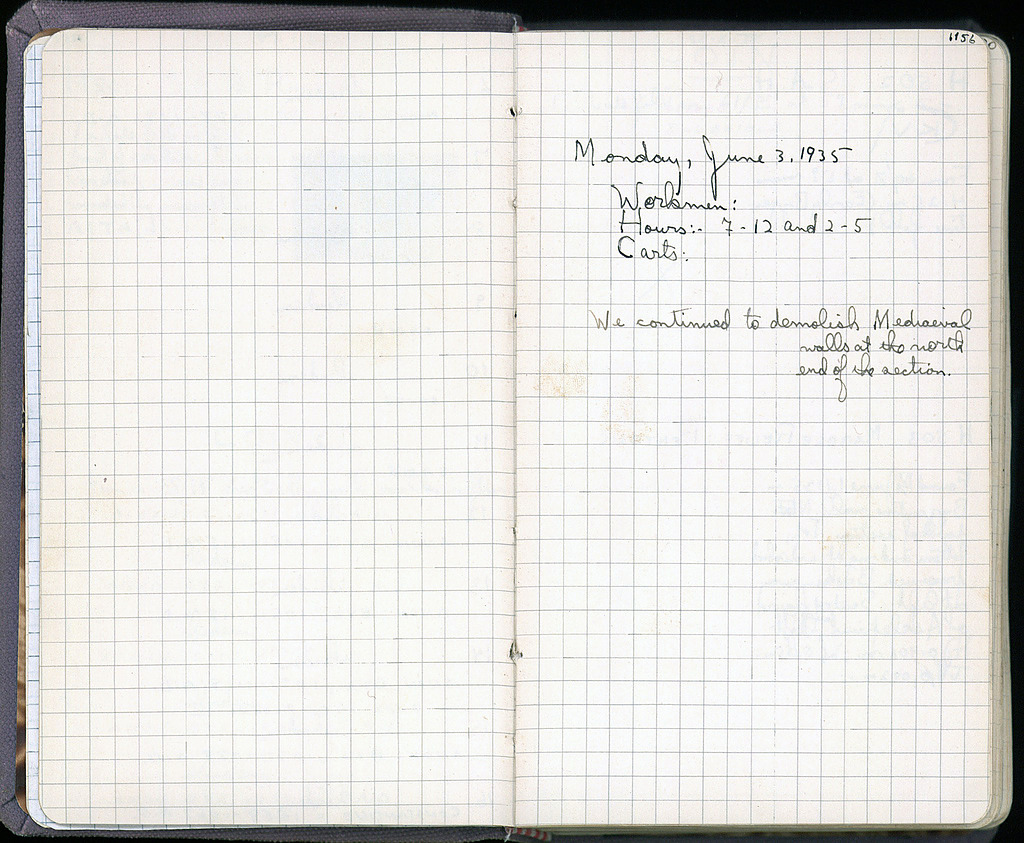 1156
Monday, June 3, 1935
Workmen:
Hours:- 7-12 and 2-5
Carts:
We continued to demolish Mediaeval
walls at the north
end of the section.